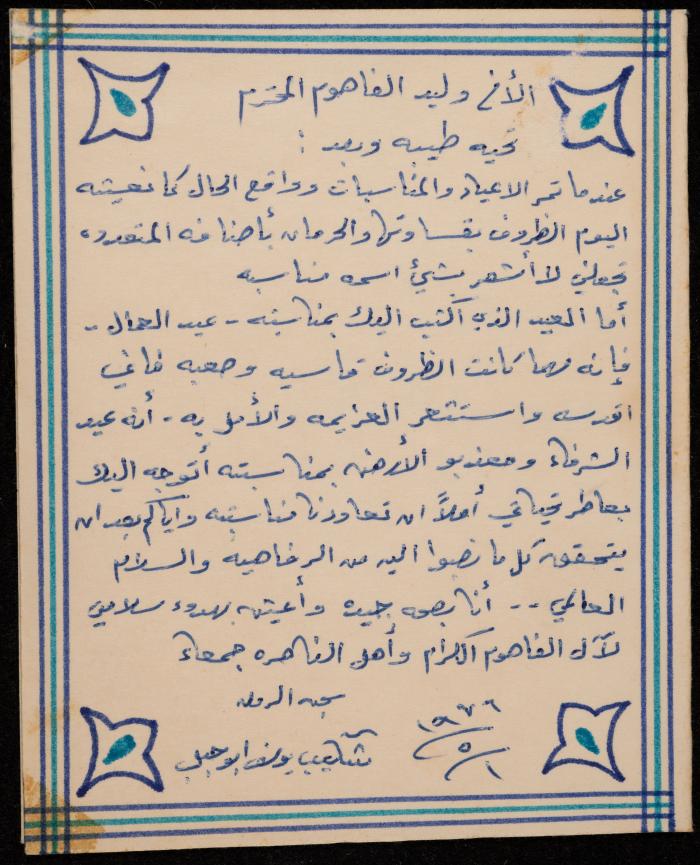 الأخ وليد الفاهوم المحترم
تحيه طيبه وبعد :
عندما تمر الاعياد والمناسبات وواقع الحال كما نعيشه
اليوم الظروف بقساوتها والحرمان بأصنافه المتعدده
تجعلني لا أشعر بشيئ اسمه مناسبه
أما العيد الذي أكتب اليك بمناسبته - عيد العمال -
فإنه مهما كانت الظروف قاسيه وصعبه فاني
اقدسه واستشعر العزيمه والأمل به - أنه عيد
الشرفاء ومعذبو الأرض بمناسبته أتوجه اليك
بعاطر تحياتي أملاً ان تعاودنا مناسبته واياكم بعد ان
يتحقق كل ما نصبوا اليه من الرفاهيه والسلام
العالمي -- أنا بصحه جيده وأعيش بهدوء سلامي
لآل الفاهوم الكرام وأهل الناصره جمعاء
سجن الرمله
١٩٧٦/٥/١
شكيب يوسف ابو جبل